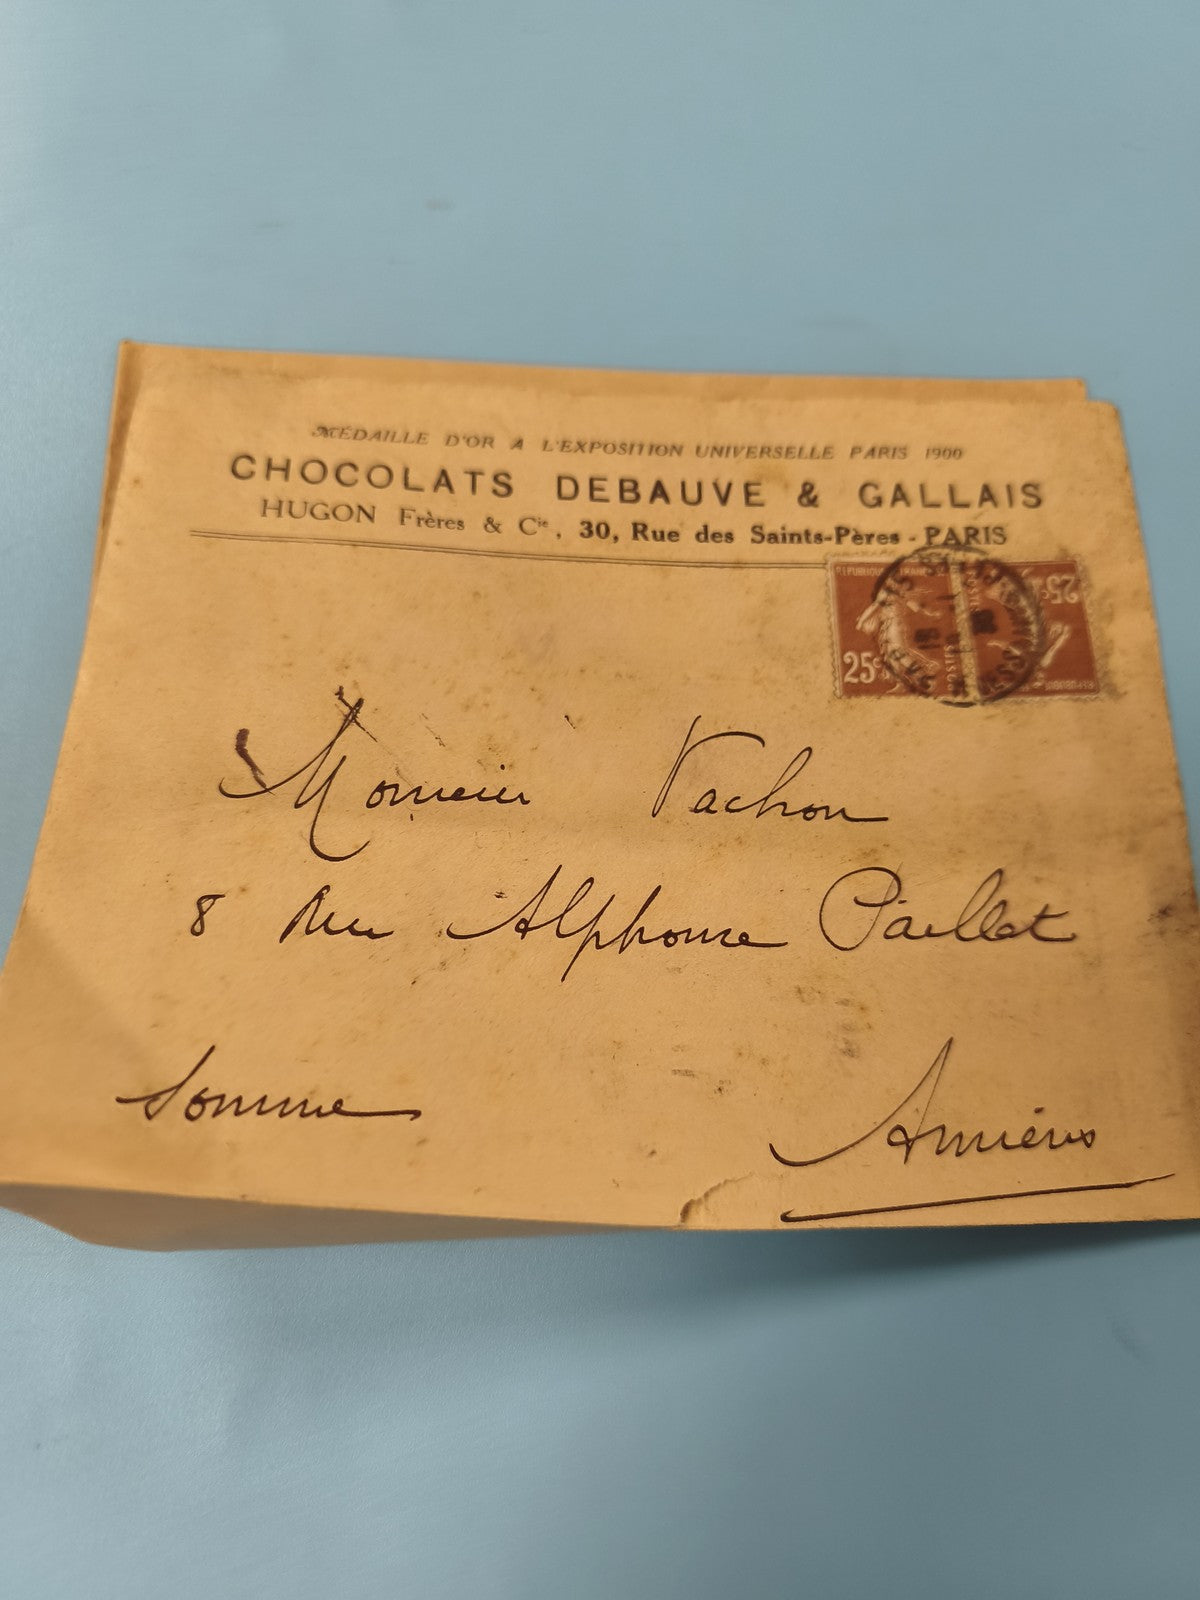 MÉDAILLE D'OR A L'EXPOSITION UNIVERSELLE PARIS 1900
CHOCOLATS DEBAUVE & GALLAIS
HUGON Frères & Cie, 30, Rue des Saints-Pères - PARIS
25c
25c
Monsieur Vachon
8 Rue Alphonse Paillet
Somme
Amiens